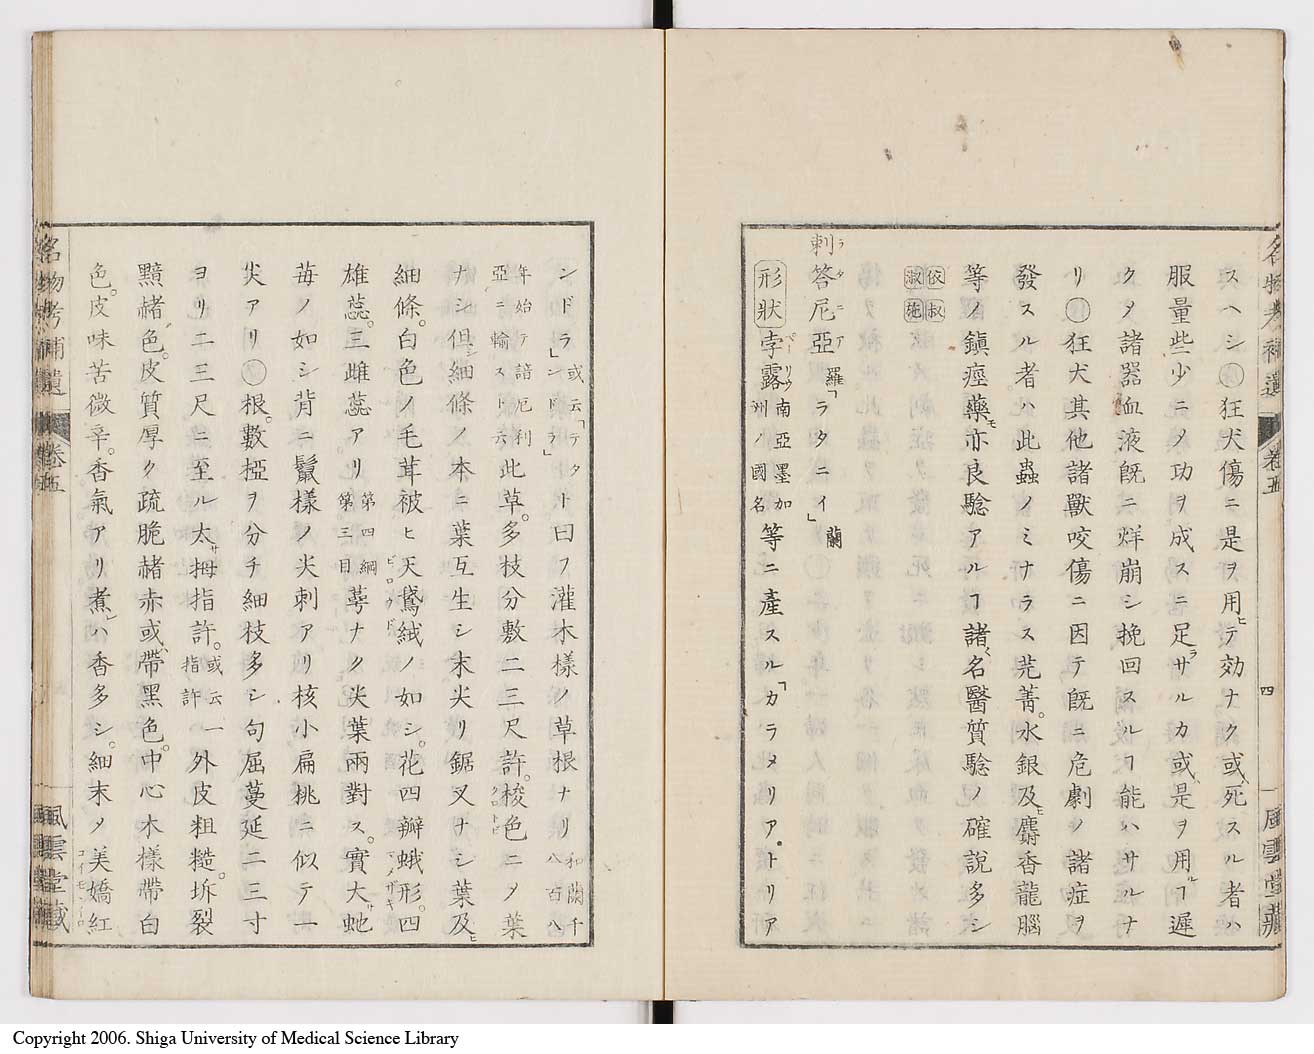 名物考補遺 卷五 四 風雲堂藏
スヘシ㊒狂犬傷ニ是ヲ用ヒテ効ナク或ハ死スル者ハ
服量些少ニメ功ヲ成スニ足ラサルカ或ハ是ヲ用ルヿ遲
クメ諸器血液既ニ烊崩シ挽回スルヿ能ハサルナ
リ 狂犬其他諸獸咬傷ニ因テ既ニ危劇ノ諸症ヲ
發スル者此蟲ノミナラス芫菁。水銀及ヒ麝香龍腦
等ノ鎮痙藥モ亦良驗アルヿ諸名醫質驗ノ確說多シ
依叔
淑𤣱
剌答尼亞 羅「ラタニイ」蘭
ラタニア
形狀 孛露南亞墨加洲ノ國名等ニ產スル「カラメリア.トリア
ペーリウ
ンドラ」或云「テタンドラ」ト曰フ灌木樣ノ草根ナリ和蘭千八百八
年始テ諳厄利亞ニ輸スト云此草。多枝分敷二三尺許。梭色ニメ葉
ナシ但シ細條ノ本ニ葉互生シ末尖リ鋸叉ナシ葉及ヒ
細條。白色ノ毛茸被ヒ天鵞絨ノ如シ。花四瓣蛾形。四
ビロウド
雄蕊。三雌蕊。アリ第四綱第三目萼ナク尖葉兩對ス。實大サ虵
莓ノ如シ背ニ鬣樣ノ尖刺アリ核小扁桃ニ似テ一
尖アリ 根。數椏ヲ分チ細枝多シ句屈蔓延二三寸
ヨリ二三尺ニ至ル太サ拇指許。或云指許一外皮粗糙。坼裂
黯赭色。皮質厚ク疏脆赭赤或ハ帶黑色。中心木樣帶白
色。皮味苦微辛。香氣アリ煮レハ香多シ。細末メ美嬌紅
名物考補遺 卷五 風雲堂藏
Copyright 2006. Shiga University of Medical Science Library